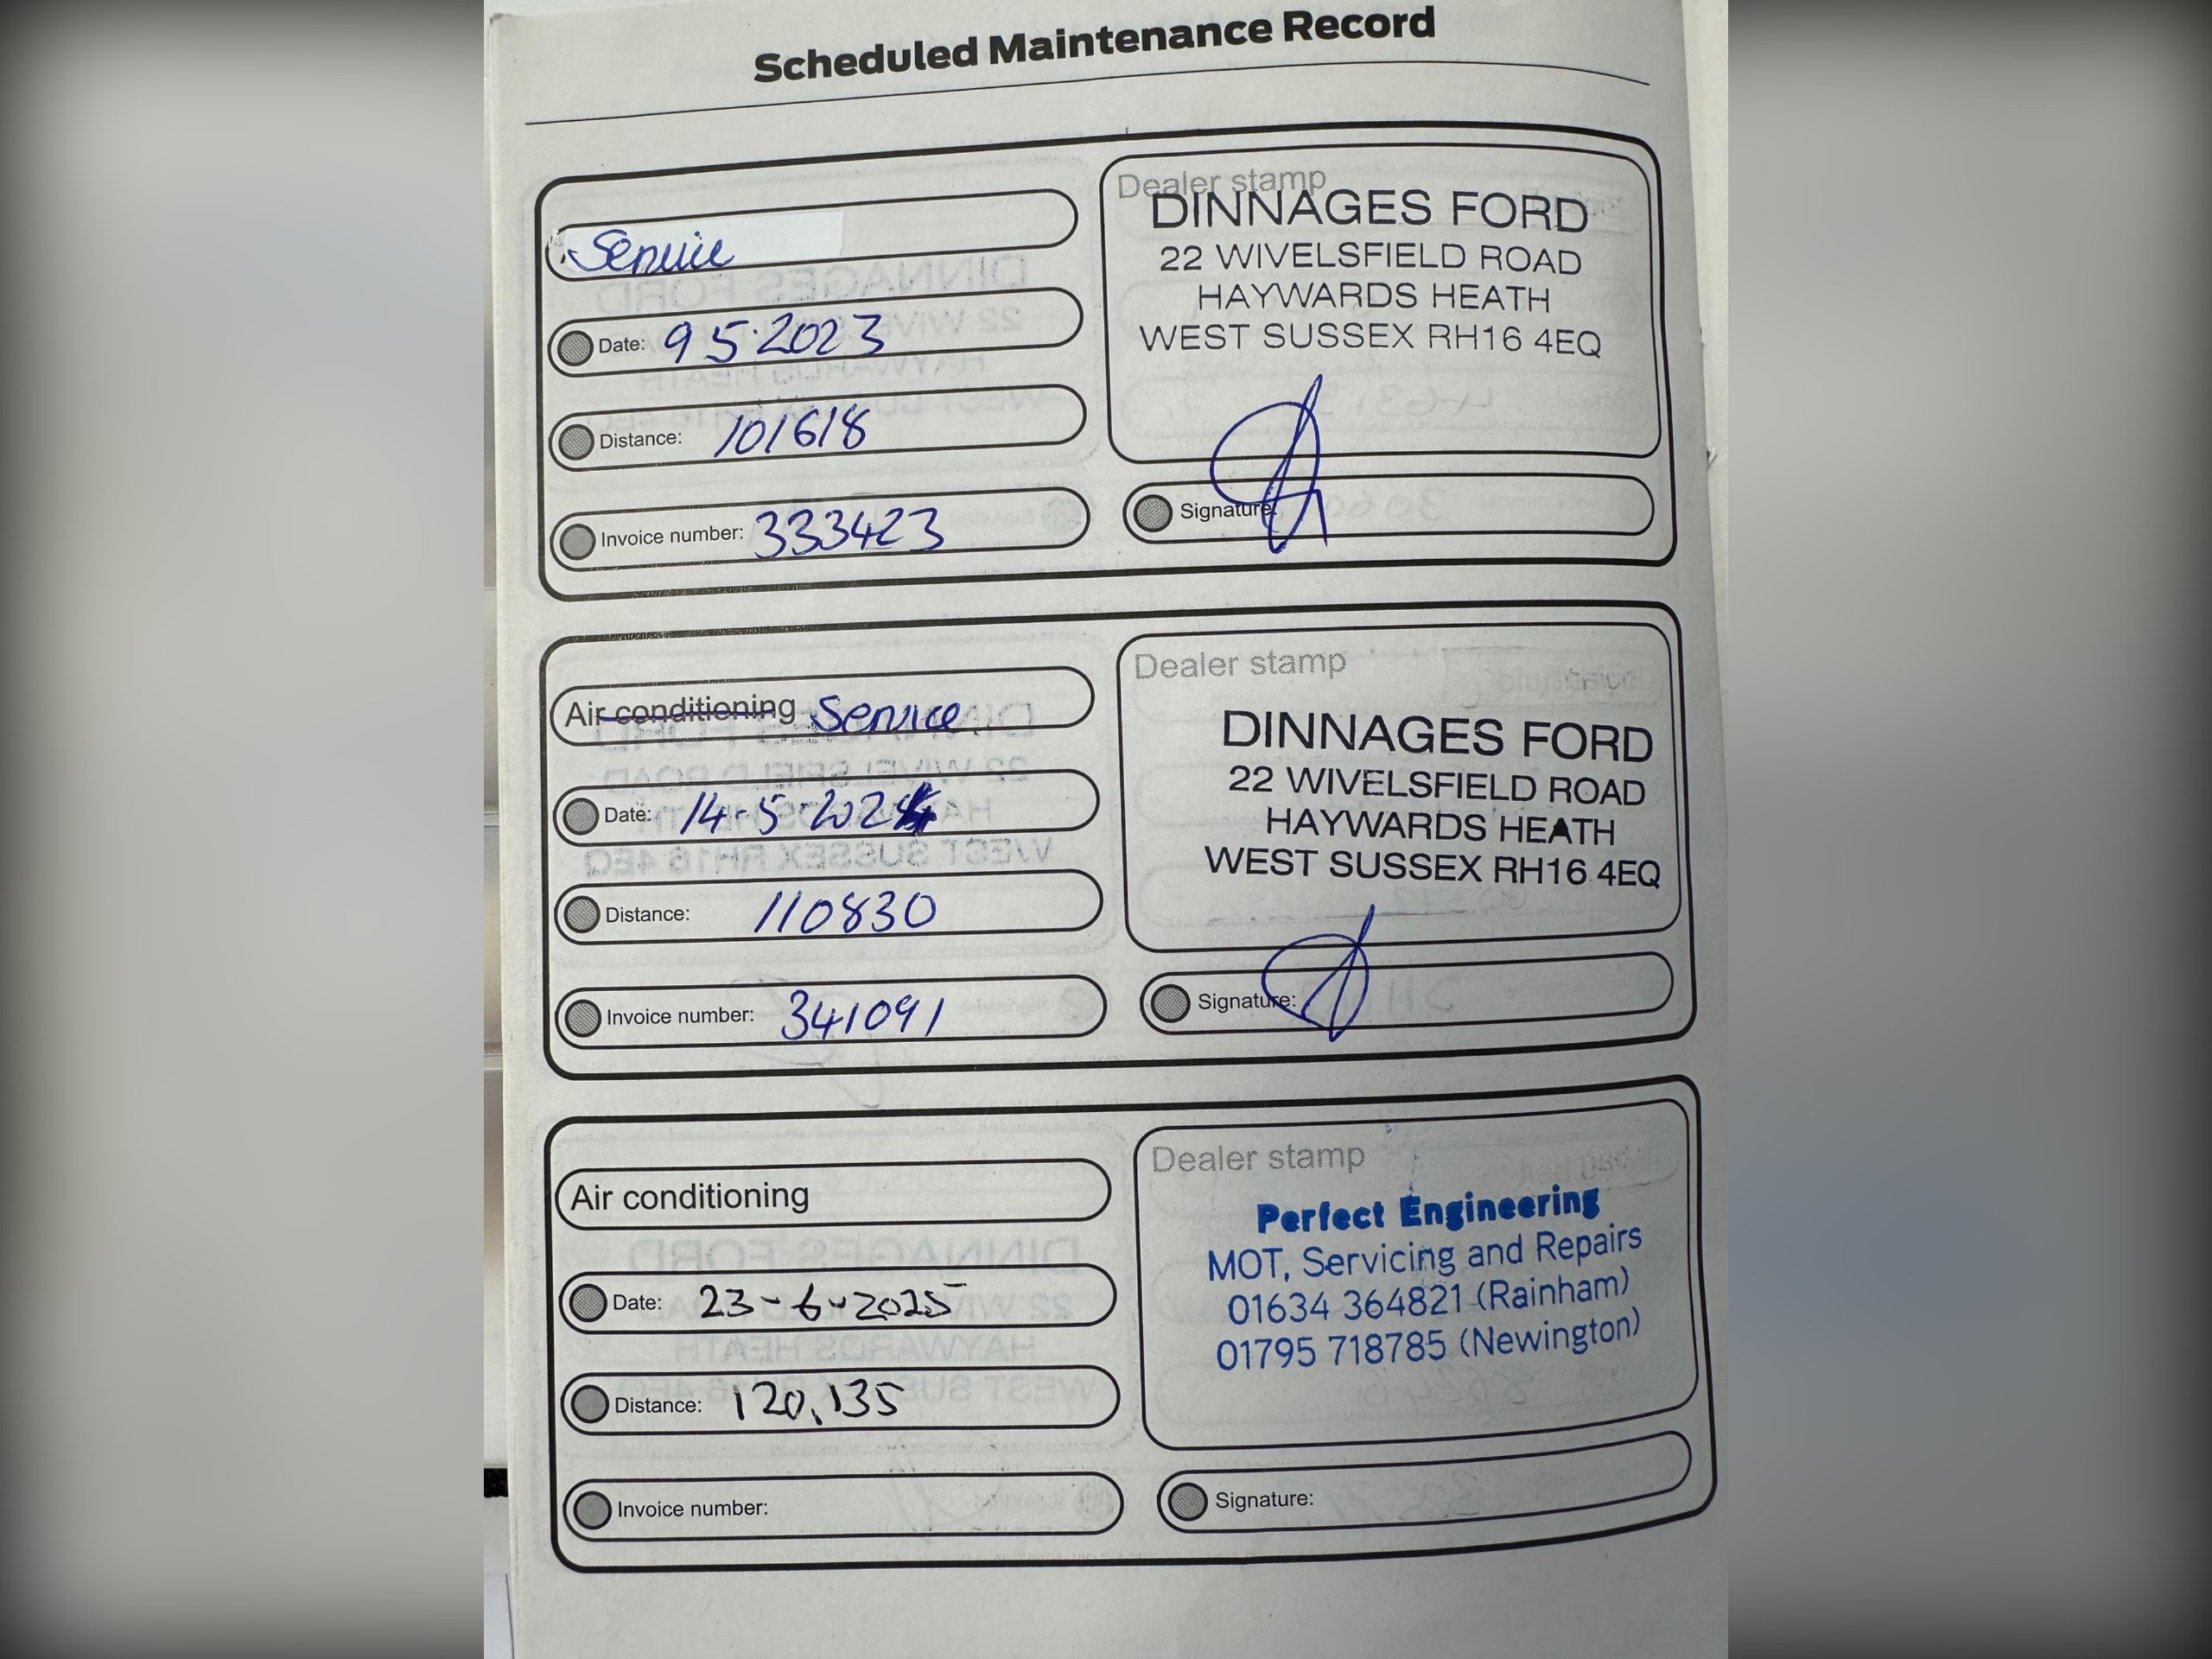 Scheduled Maintenance Record
Service
Dealer stamp
DINNAGES FORD
22 WIVELSFIELD ROAD
HAYWARDS HEATH
WEST SUSSEX RH16 4EQ
Date: 9 5.2023
Distance: 101618
Invoice number: 333423
Signature:
Air conditioning Service
Dealer stamp
DINNAGES FORD
22 WIVELSFIELD ROAD
HAYWARDS HEATH
WEST SUSSEX RH16 4EQ
Date: 14-5-2024
Distance: 110830
Invoice number: 341091
Signature:
Air conditioning
Dealer stamp
Perfect Engineering
MOT, Servicing and Repairs
01634 364821 (Rainham)
01795 718785 (Newington)
Date: 23-6-2025
Distance: 120,135
Invoice number:
Signature: